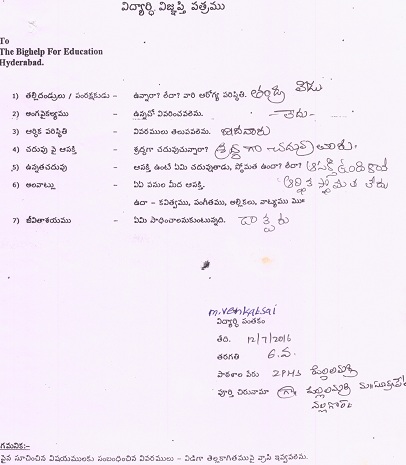 విద్యార్ధి విజ్ఞప్తి పత్రము
To
The Bighelp For Education
Hyderabad.
1) తల్లిదండ్రులు / సంరక్షకుడు – ఉన్నారా? లేదా? వారి ఆరోగ్య పరిస్థితి. తండ్రి లేడు
2) అంగవైకల్యము – ఉన్నచో వివరించవలెను. – లేదు –
3) ఆర్థిక పరిస్థితి – వివరములు తెలుపవలెను.
4) చదువు పై ఆసక్తి – శ్రద్ధగా చదువుచున్నారా? శ్రద్ధగా చదువుతున్నాడు.
5) ఉన్నతచదువు – ఆసక్తి ఉంటే ఏమి చదువుతాడు, స్తోమత ఉందా? లేదా? ఆసక్తి ఉంది
6) అలవాట్లు – ఏఏ పనుల మీద ఆసక్తి. ఆర్థిక స్తోమత లేదు
ఉదా – కవిత్వము, సంగీతము, అల్లికలు, నాట్యము ము॥
7) జీవితాశయము – ఏమి సాధించాలనుకుంటున్నది. డాక్టరు
M.Venkatsai
విద్యార్ధి సంతకం
తేది. 12/7/2016
తరగతి 6.వ.
పాఠశాల పేరు ZPHS
పూర్తి చిరునామా గ్రా
నల్గొండ
గమనిక:-
పైన సూచించిన విషయములకు సంబంధించిన వివరములు – విడిగా తెల్లకాగితముపై వ్రాసి ఇవ్వవలెను.